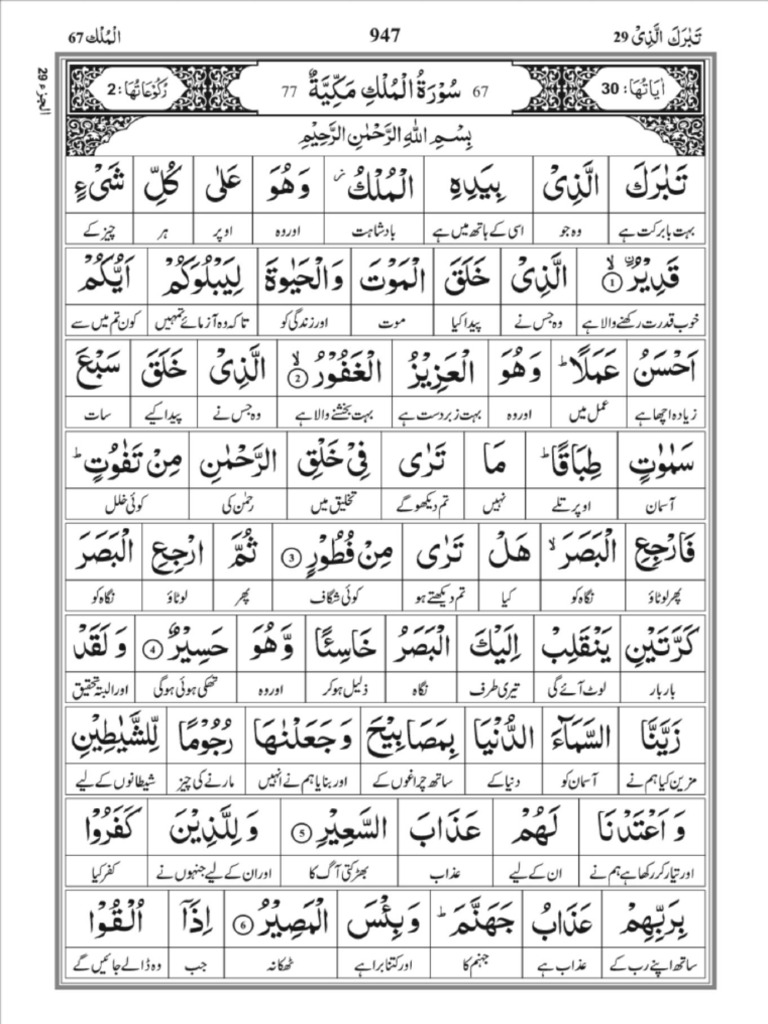 تَبٰرَكَ الَّذِیْ 29 947 الْمُلْك 67
الجزء 29
اٰیَاتُهَا: 30 67 سُوْرَةُ الْمُلْكِ مَكِّیَّةٌ 77 رُكُوْعَاتُهَا: 2
بِسْمِ اللّٰهِ الرَّحْمٰنِ الرَّحِیْمِ
تَبٰرَكَ الَّذِیْ بِیَدِهِ الْمُلْكُ ؗ وَهُوَ عَلٰی كُلِّ شَیْءٍ
بہت بابرکت ہے وہ جو اسی کے ہاتھ میں ہے بادشاہت اور وہ اوپر ہر چیز کے
قَدِیْرُ ۙ ۝1 الَّذِیْ خَلَقَ الْمَوْتَ وَالْحَیٰوةَ لِیَبْلُوَكُمْ اَیُّكُمْ
خوب قدرت رکھنے والا ہے وہ جس نے پیدا کیا موت اور زندگی کو تاکہ وہ آزمائے تمہیں کون تم میں سے
اَحْسَنُ عَمَلًا ؕ وَهُوَ الْعَزِیْزُ الْغَفُوْرُ ۙ ۝2 الَّذِیْ خَلَقَ سَبْعَ
زیادہ اچھا ہے عمل میں اور وہ بہت زبردست ہے بہت بخشنے والا ہے وہ جس نے پیدا کیے سات
سَمٰوٰتٍ طِبَاقًا ؕ مَا تَرٰی فِیْ خَلْقِ الرَّحْمٰنِ مِنْ تَفٰوُتٍ ؕ
آسمان اوپر تلے نہیں تم دیکھو گے تخلیق میں رحمٰن کی کوئی خلل
فَارْجِعِ الْبَصَرَ ۙ هَلْ تَرٰی مِنْ فُطُوْرٍ ۝3 ثُمَّ ارْجِعِ الْبَصَرَ
پھر لوٹاؤ نگاہ کو کیا تم دیکھتے ہو کوئی شگاف پھر لوٹاؤ نگاہ کو
كَرَّتَیْنِ یَنْقَلِبْ اِلَیْكَ الْبَصَرُ خَاسِئًا وَّهُوَ حَسِیْرٌ ۝4 وَلَقَدْ
بار بار لوٹ آئے گی تیری طرف نگاہ ذلیل ہو کر اور وہ تھکی ہوئی ہوگی اور البتہ تحقیق
زَیَّنَّا السَّمَآءَ الدُّنْیَا بِمَصَابِیْحَ وَجَعَلْنٰهَا رُجُوْمًا لِّلشَّیٰطِیْنِ
مزین کیا ہم نے آسمان کو دنیا کے ساتھ چراغوں کے اور بنایا ہم نے انہیں مارنے کی چیز شیطانوں کے لیے
وَاَعْتَدْنَا لَهُمْ عَذَابَ السَّعِیْرِ ۝5 وَلِلَّذِیْنَ كَفَرُوْا
اور تیار کر رکھا ہے ہم نے ان کے لیے عذاب بھڑکتی آگ کا اور ان کے لیے جنہوں نے کفر کیا
بِرَبِّهِمْ عَذَابُ جَهَنَّمَ ؕ وَبِئْسَ الْمَصِیْرُ ۝6 اِذَاۤ اُلْقُوْا
ساتھ اپنے رب کے عذاب ہے جہنم کا اور کتنا برا ہے ٹھکانہ جب وہ ڈالے جائیں گے